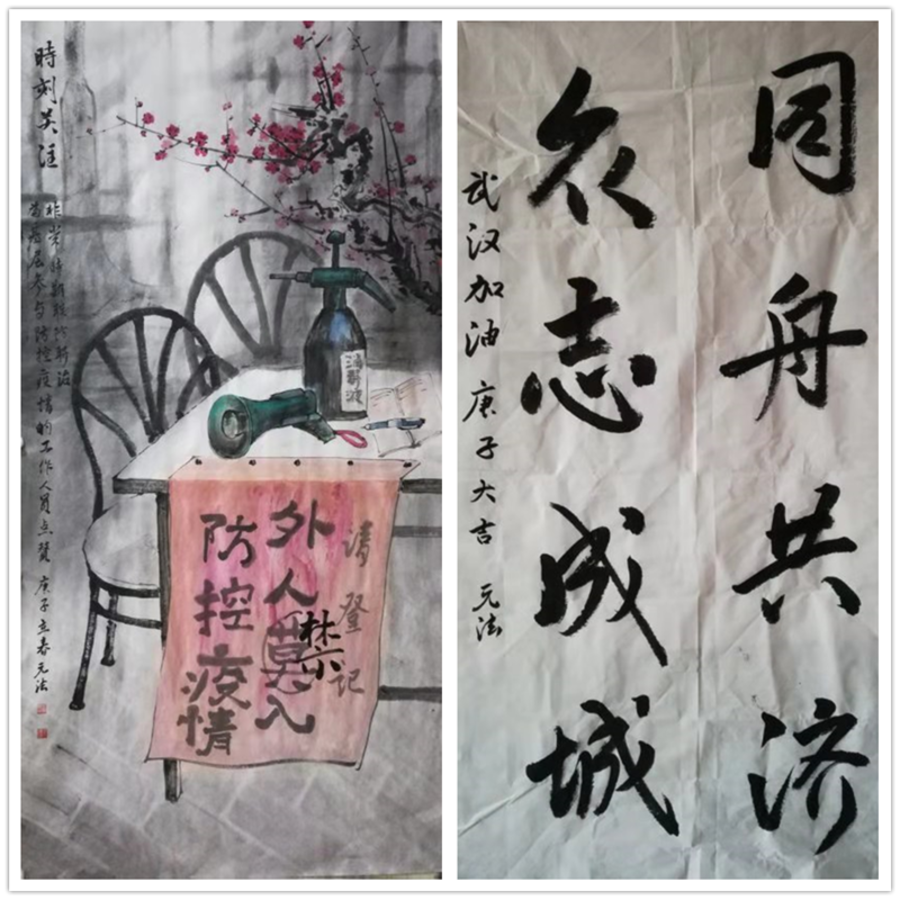 時刻关注
非常時期
参与防控疫情的工作人員点贊 庚子立春元法
消毒液
请登记
外人莫入
禁
防控疫情
同舟共济
众志成城
武汉加油 庚子大吉 元法